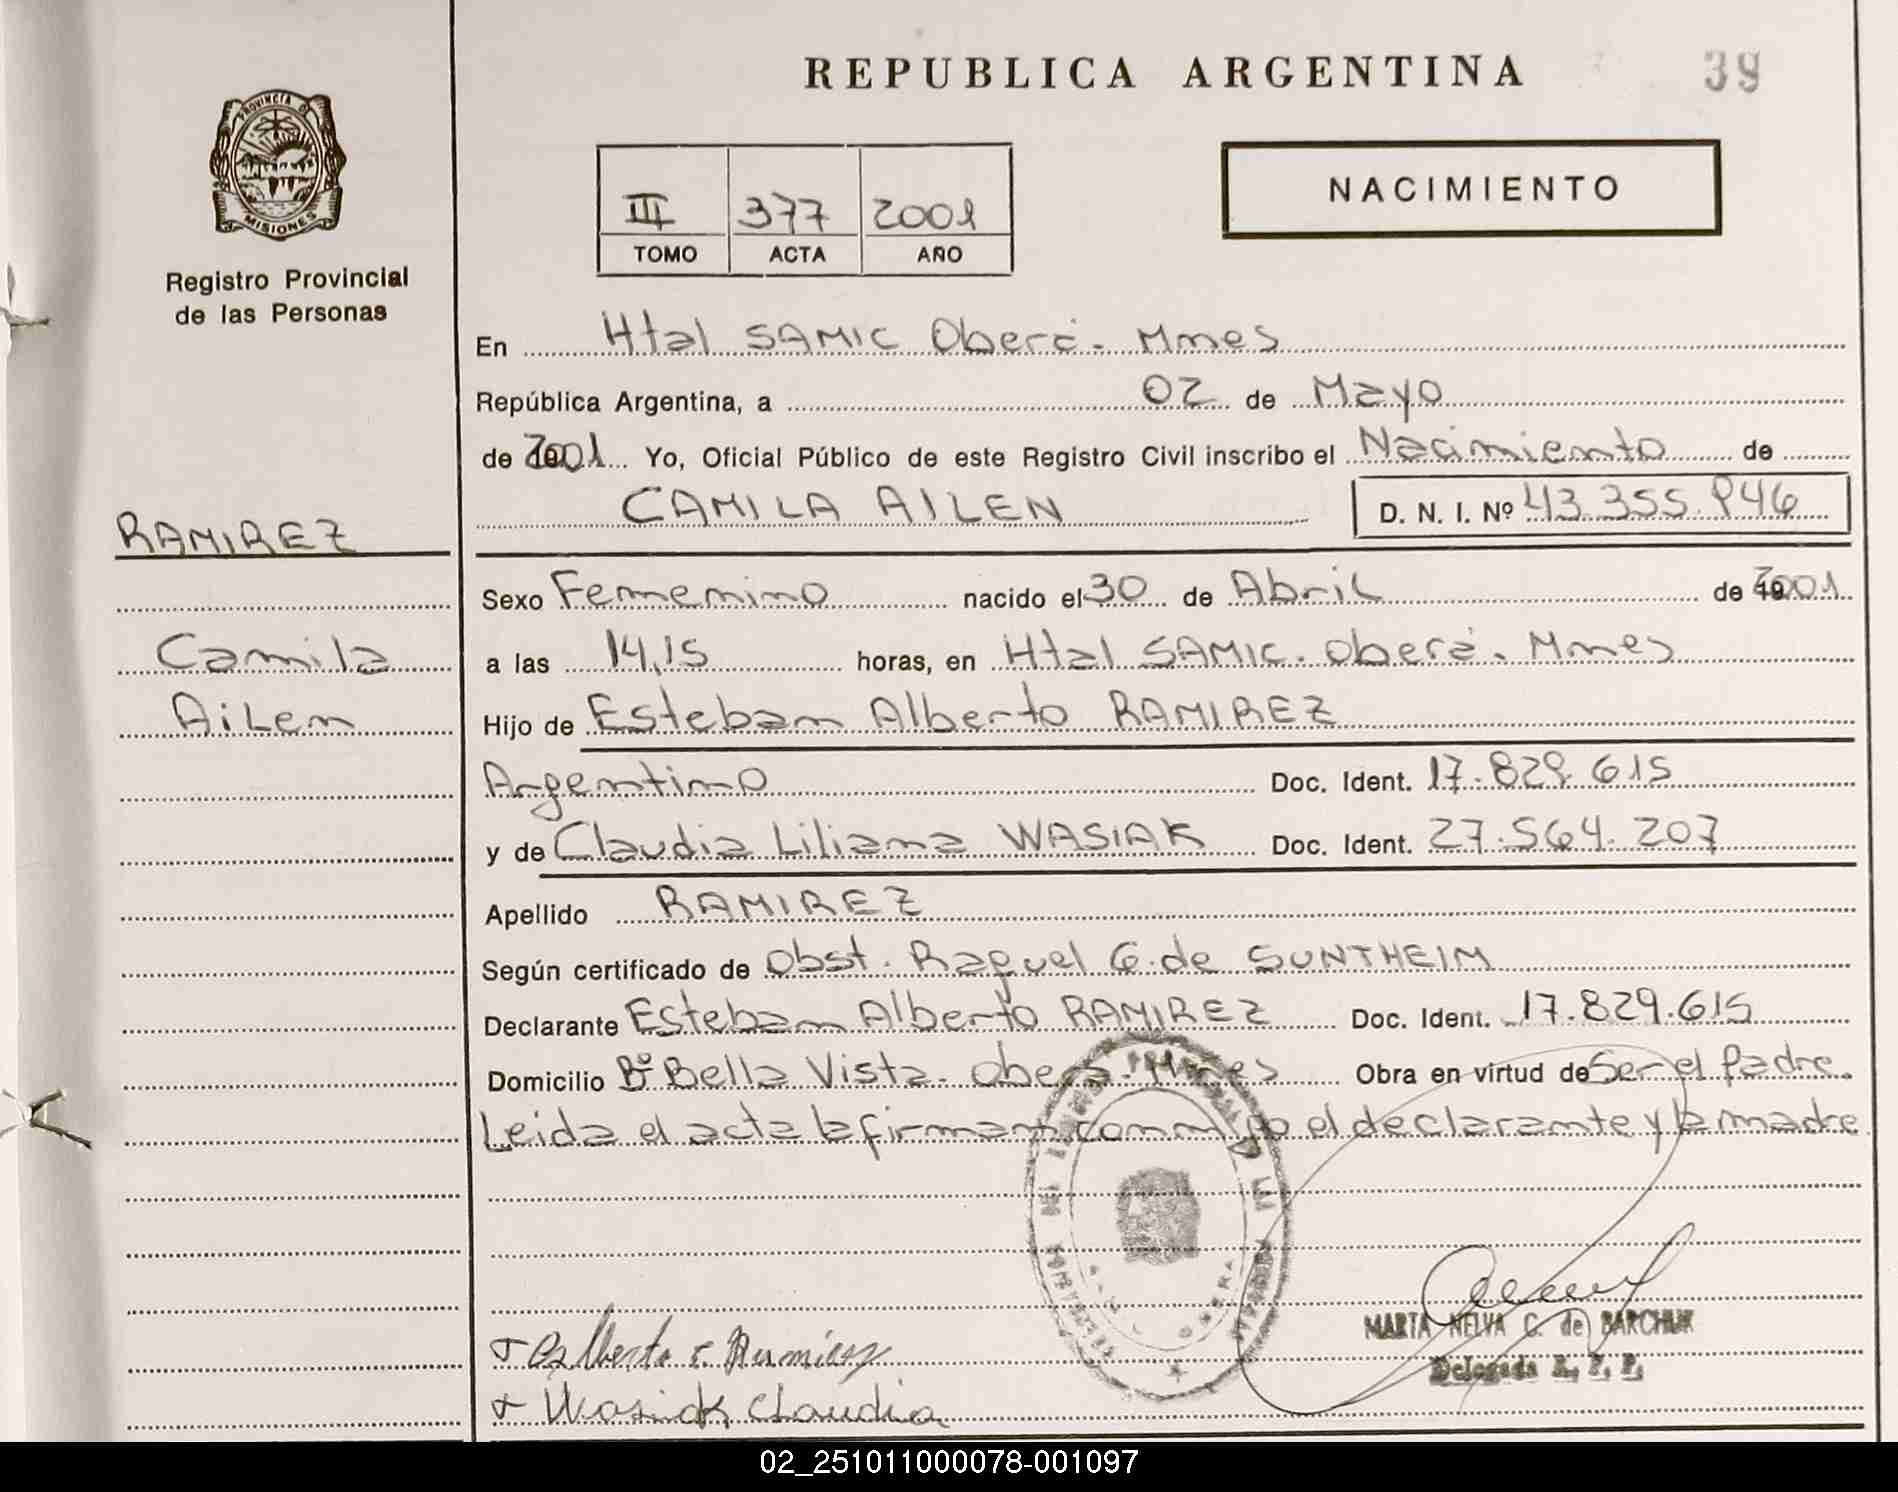 REPUBLICA ARGENTINA
39
PROVINCIA DE
MISIONES
Registro Provincial
de las Personas
III 377 2001
TOMO ACTA AÑO
NACIMIENTO
En Htal SAMIC Oberá. Mnes
República Argentina, a 02 de Mayo
de 2001 Yo, Oficial Público de este Registro Civil inscribo el Nacimiento de
CAMILA AILEN D. N. I. Nº 43.355.846
RAMIREZ
Camila
Ailen
Sexo Femenino nacido el 30 de Abril de 2001
a las 14,15 horas, en Htal SAMIC. Oberá. Mnes
Hijo de Esteban Alberto RAMIREZ
Argentino Doc. Ident. 17.829.615
y de Claudia Liliana WASIAK Doc. Ident. 27.564.207
Apellido RAMIREZ
Según certificado de Obst. Raquel G. de SUNTHEIM
Declarante Esteban Alberto RAMIREZ Doc. Ident. 17.829.615
Domicilio Bº Bella Vista. Oberá. Mnes Obra en virtud de Ser el Padre.
Leida el acta la firman conmigo el declarante y la madre
MARTA NELVA C. de BARCHUK
Delegada R. P. P.
Wasiak Claudia
02_251011000078-001097